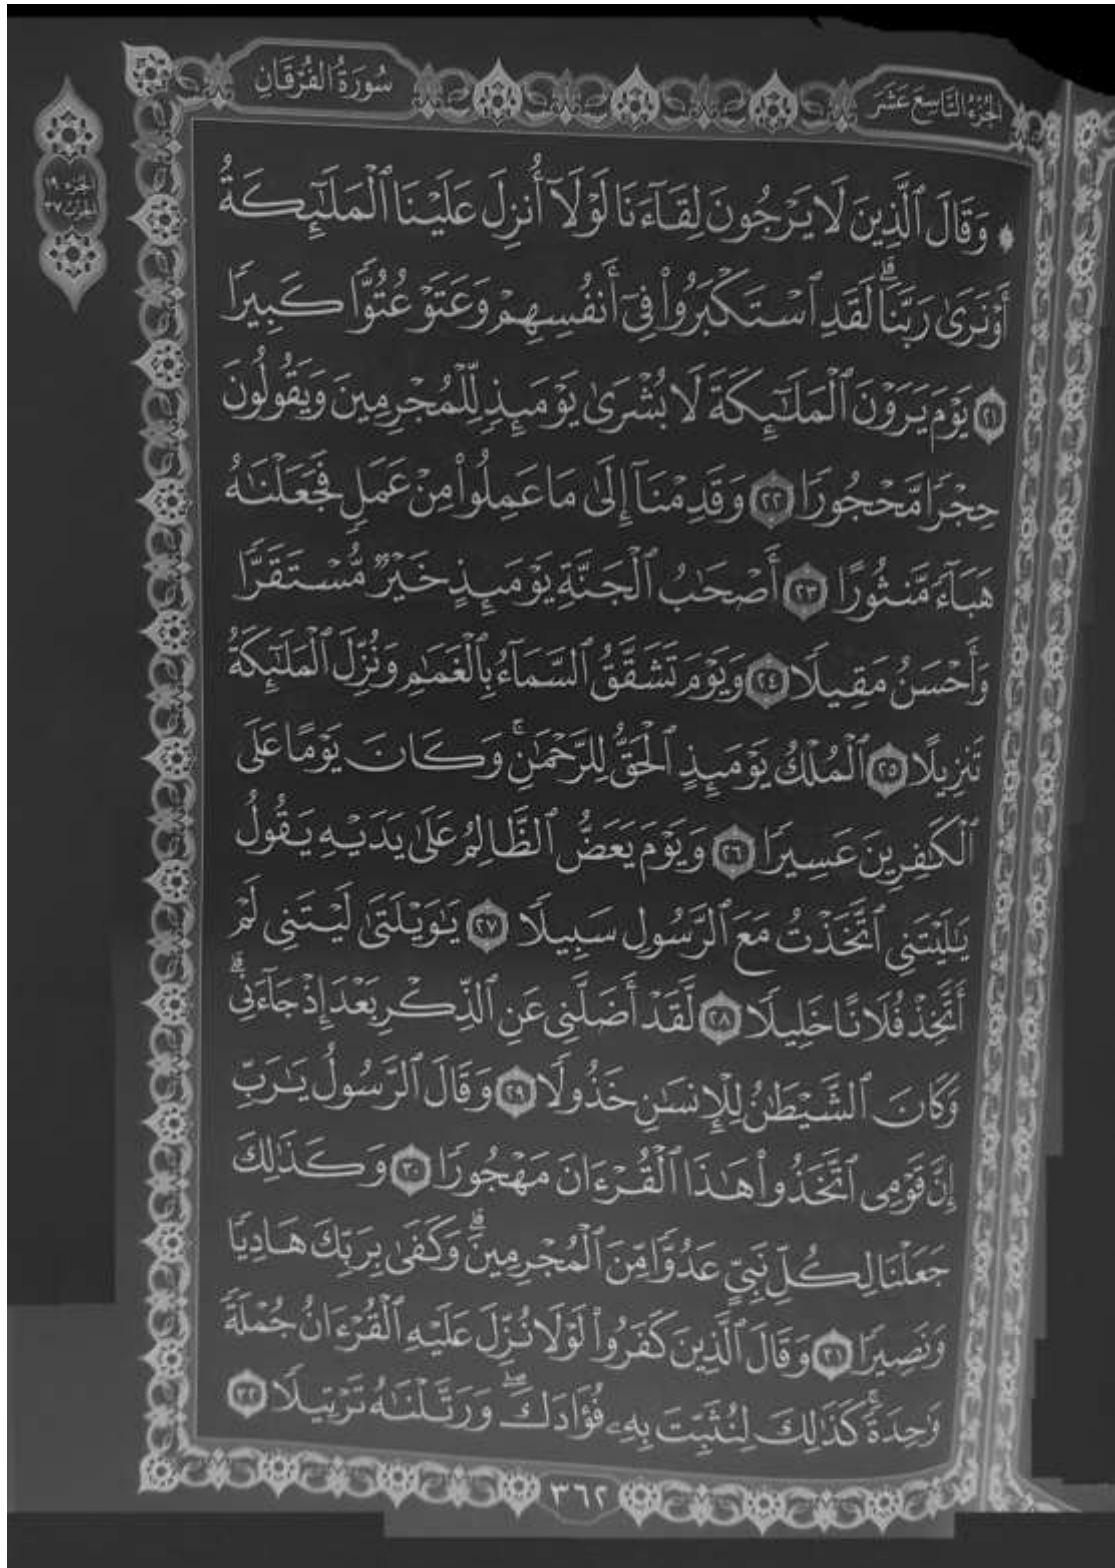 سُورَةُ الفُرْقَانِ
الجُزْءُ التَّاسِعَ عَشَرَ
الجزء ١٩
۞ وَقَالَ ٱلَّذِينَ لَا يَرْجُونَ لِقَآءَنَا لَوْلَآ أُنزِلَ عَلَيْنَا ٱلْمَلَـٰٓئِكَةُ
أَوْ نَرَىٰ رَبَّنَا ۗ لَقَدِ ٱسْتَكْبَرُوا۟ فِىٓ أَنفُسِهِمْ وَعَتَوْ عُتُوًّا كَبِيرًا
٢١ يَوْمَ يَرَوْنَ ٱلْمَلَـٰٓئِكَةَ لَا بُشْرَىٰ يَوْمَئِذٍ لِّلْمُجْرِمِينَ وَيَقُولُونَ
حِجْرًا مَّحْجُورًا ٢٢ وَقَدِمْنَآ إِلَىٰ مَا عَمِلُوا۟ مِنْ عَمَلٍ فَجَعَلْنَـٰهُ
هَبَآءً مَّنثُورًا ٢٣ أَصْحَـٰبُ ٱلْجَنَّةِ يَوْمَئِذٍ خَيْرٌ مُّسْتَقَرًّا
وَأَحْسَنُ مَقِيلًا ٢٤ وَيَوْمَ تَشَقَّقُ ٱلسَّمَآءُ بِٱلْغَمَـٰمِ وَنُزِّلَ ٱلْمَلَـٰٓئِكَةُ
تَنزِيلًا ٢٥ ٱلْمُلْكُ يَوْمَئِذٍ ٱلْحَقُّ لِلرَّحْمَـٰنِ ۚ وَكَانَ يَوْمًا عَلَى
ٱلْكَـٰفِرِينَ عَسِيرًا ٢٦ وَيَوْمَ يَعَضُّ ٱلظَّالِمُ عَلَىٰ يَدَيْهِ يَقُولُ
يَـٰلَيْتَنِى ٱتَّخَذْتُ مَعَ ٱلرَّسُولِ سَبِيلًا ٢٧ يَـٰوَيْلَتَىٰ لَيْتَنِى لَمْ
أَتَّخِذْ فُلَانًا خَلِيلًا ٢٨ لَّقَدْ أَضَلَّنِى عَنِ ٱلذِّكْرِ بَعْدَ إِذْ جَآءَنِى ۗ
وَكَانَ ٱلشَّيْطَـٰنُ لِلْإِنسَـٰنِ خَذُولًا ٢٩ وَقَالَ ٱلرَّسُولُ يَـٰرَبِّ
إِنَّ قَوْمِى ٱتَّخَذُوا۟ هَـٰذَا ٱلْقُرْءَانَ مَهْجُورًا ٣٠ وَكَذَٰلِكَ
جَعَلْنَا لِكُلِّ نَبِىٍّ عَدُوًّا مِّنَ ٱلْمُجْرِمِينَ ۗ وَكَفَىٰ بِرَبِّكَ هَادِيًا
وَنَصِيرًا ٣١ وَقَالَ ٱلَّذِينَ كَفَرُوا۟ لَوْلَا نُزِّلَ عَلَيْهِ ٱلْقُرْءَانُ جُمْلَةً
وَٰحِدَةً ۚ كَذَٰلِكَ لِنُثَبِّتَ بِهِۦ فُؤَادَكَ ۖ وَرَتَّلْنَـٰهُ تَرْتِيلًا ٣٢
٣٦٢